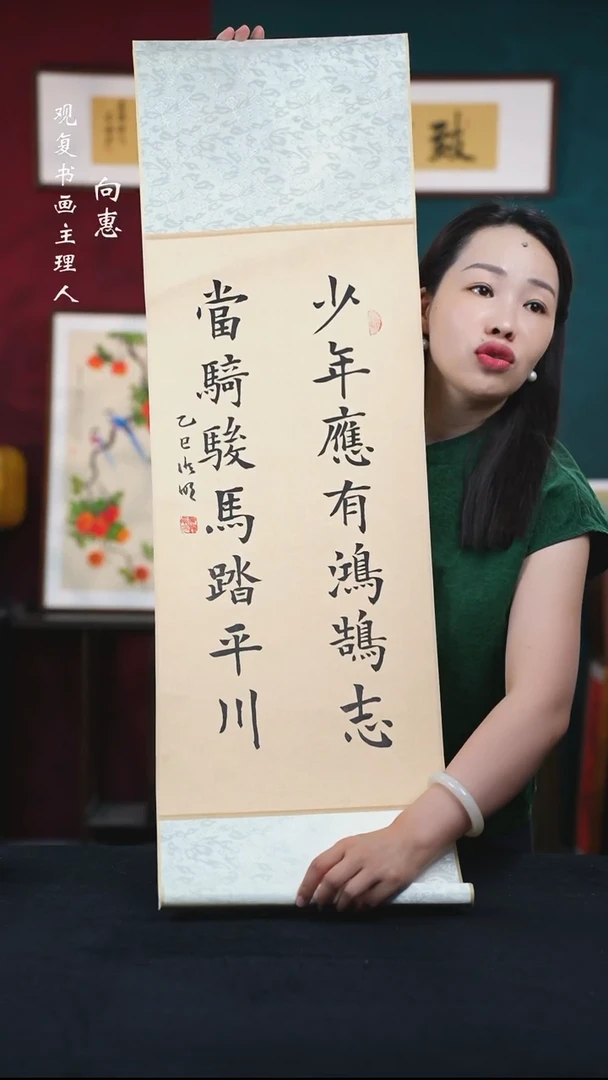 少年應有鴻鵠志
當騎駿馬踏平川
乙巳浩明
向惠
观复书画主理人